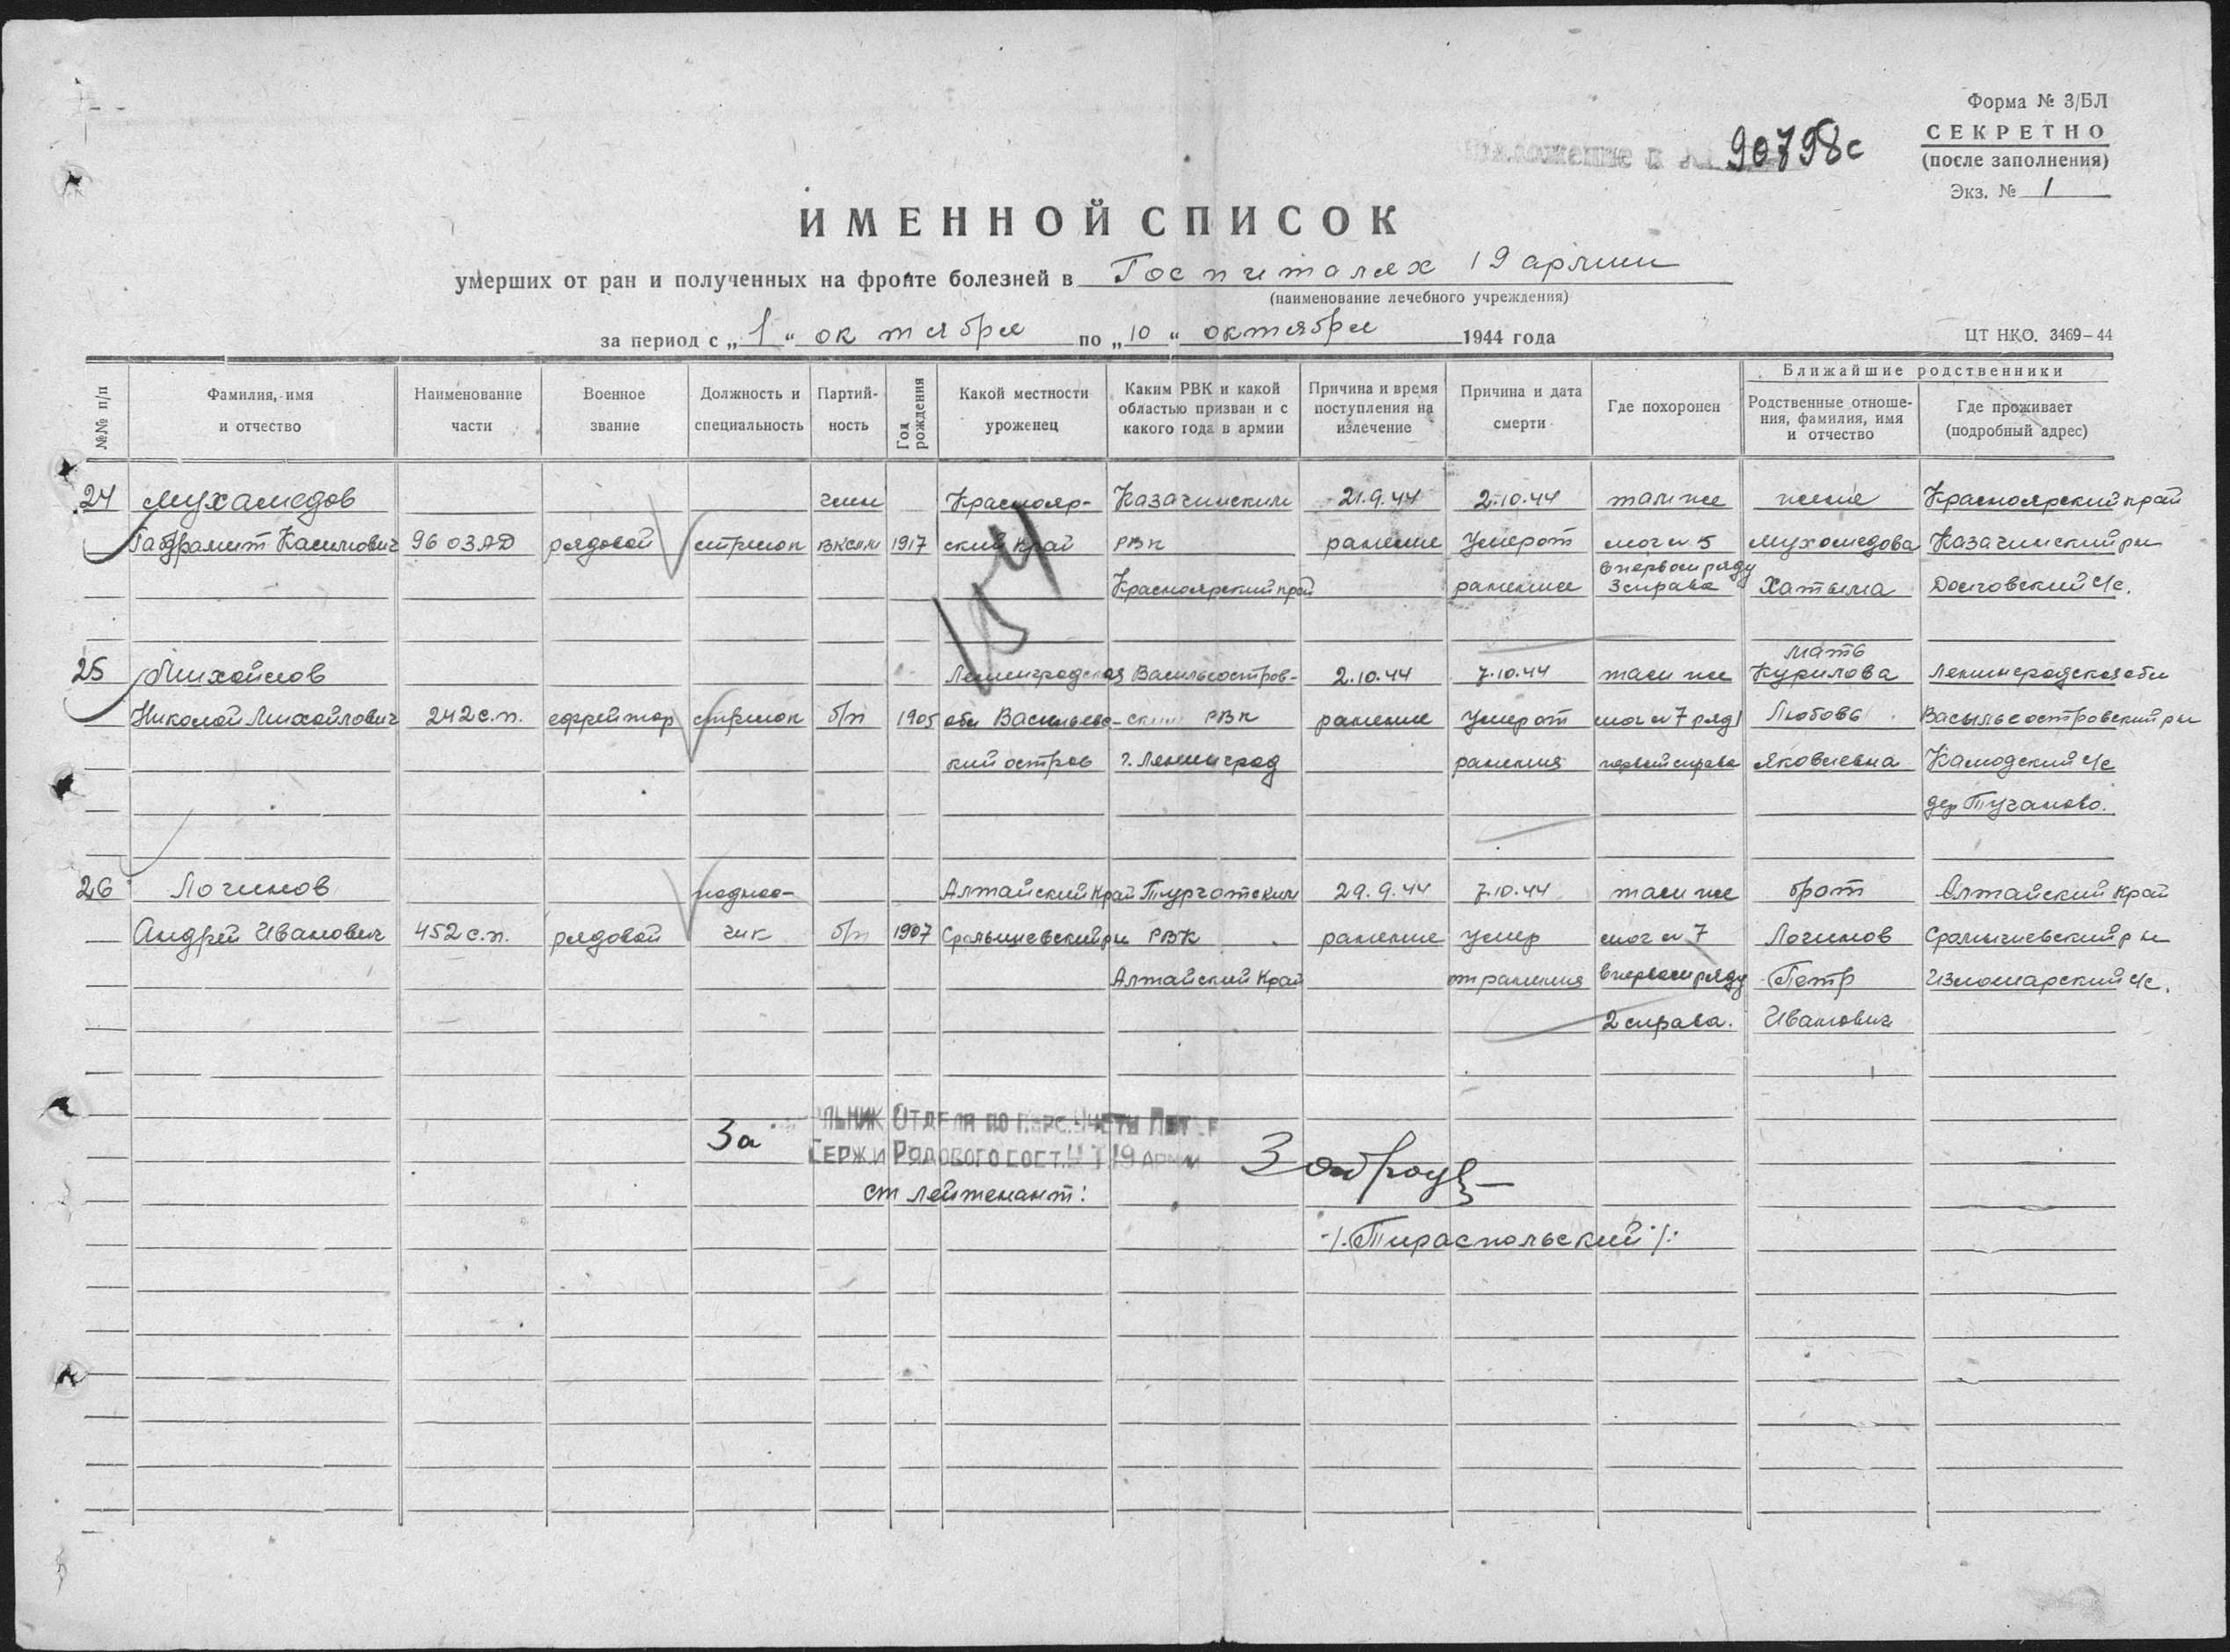 Форма № 3/БЛ
СЕКРЕТНО
(после заполнения)
Экз. № 1
Приложение к № 90798с
ИМЕННОЙ СПИСОК
умерших от ран и полученных на фронте болезней в Госпиталях 19 армии
(наименование лечебного учреждения)
за период с „1“ октября по „10“ октября 1944 года
ЦТ НКО. 3469–44
№№ п/п
Фамилия, имя и отчество
Наименование части
Военное звание
Должность и специальность
Партий-ность
Год рождения
Какой местности уроженец
Каким РВК и какой областью призван и с какого года в армии
Причина и время поступления на излечение
Причина и дата смерти
Где похоронен
Ближайшие родственники
Родственные отноше-ния, фамилия, имя и отчество
Где проживает (подробный адрес)
24 Мухамедов член Краснояр- Казачинским 21.9.44 2.10.44 там же жена Красноярский край
Габдрамит Касимович 96 ОЗАД рядовой стрелок ВКСМ 1917 ский край РВК ранение Умер от мог № 5 Мухомедова Казачинский рн
Красноярский край ранения в первом ряду 3 справа Хатыма с/с.
154
25 Михайлов Ленинградская Васильеостров- 2.10.44 7.10.44 там же мать Курилова Ленинградская обл
Николай Михайлович 242 с.п. ефрейтор стрелок б/п 1905 обл Васильевс- ским РВК ранение Умер от мог № 7 ряд Любовь Васильеостровский рн
кий остров г. Ленинград ранения первый справа Яковлевна с/с
дер Тучаново.
26 Логинов поднос- Алтайский Край 29.9.44 7.10.44 там же брат Алтайский Край
Андрей Иванович 452 с.п. рядовой чик б/п 1907 РВК ранение умер мог № 7 Логинов
Алтайский Край от ранения в первом ряду Петр с/с.
2 справа. Иванович
За НАЧАЛЬНИК ОТДЕЛА ПО ПЕРС. УЧЕТУ ПОТЕРЬ
СЕРЖ. И РЯДОВОГО СОСТ. 19 АРМИИ
ст лейтенант:
/Тираспольский/: